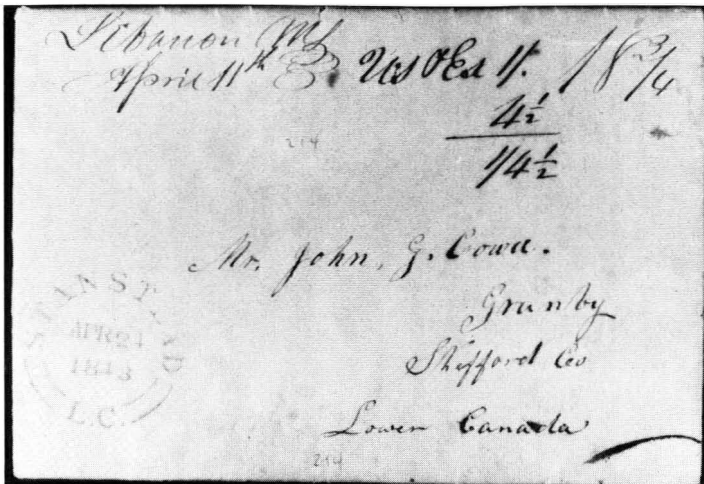 Lebanon Me
April 11th
US PEs 1/. 18 3/4
4 1/2
1/4 1/2
214
Mr. John, G. Cowe.
Granby
Shefford Co
Lower Canada
STANSTEAD
APR 21
1843
L.C.
214